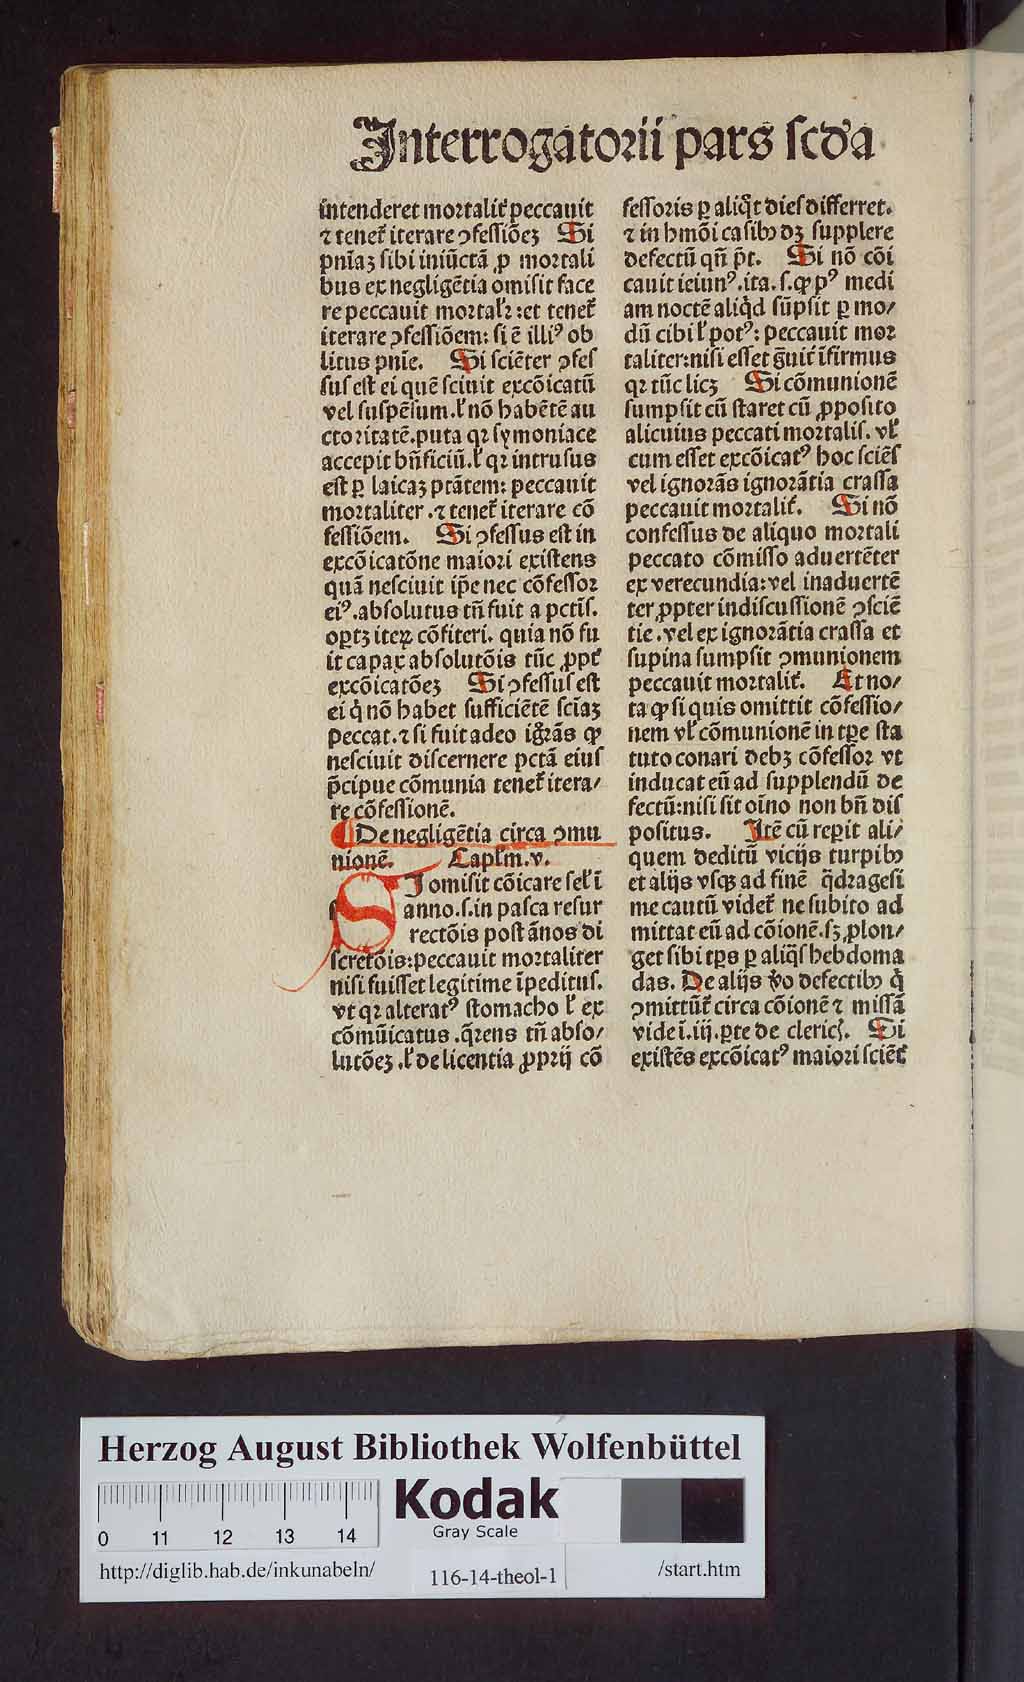 Interrogatorii pars scďa
intenderet moꝛtalit᷑ peccauit
⁊ tenet᷑ iterare ꝯfessiōeꝫ Si
pn̄iaꝫ sibi iniūctā ꝓ moꝛtali
bus ex negligētia omisit face
re peccauit moꝛtal'r: et tenet᷑
iterare ꝯfessiōem: si ē illiꝰ ob
litus pn̄ie. Si sciēter ꝯfes
sus est ei quē sciuit excōicatū
vel suspēsum. l' nō habētē au
ctoꝛitatē. puta qꝛ symoniace
accepit bn̄ficiū. l' qꝛ intrusus
est ꝑ laicaꝫ ptātem: peccauit
moꝛtaliter. ⁊ tenet᷑ iterare cō
fessiōem. Si ꝯfessus est in
excōicatōne maioꝛi existens
quā nesciuit ip̄e nec cōfessoꝛ
eiꝰ. absolutus tn̄ fuit a pctīs.
opꝫtꝫ iteꝝ cōfiteri. quia nō fu
it capax absolutōis tūc ꝓpt᷑
excōicatōeꝫ Si ꝯfessus est
ei q̇ nō habet sufficiētē sciaꝫ
peccat. ⁊ si fuit adeo ig̅rās ꝙ
nesciuit discernere pctā eius
p̄cipue cōmunia tenet᷑ itera/
re cōfessionē.
De negligētia circa ꝯmu
nionē. Capl'm. v.
SI omisit cōicare sel' ī
anno. s. in pasca resur
rectōis post ānos di
scretōis: peccauit moꝛtaliter
nisi fuisset legitime īpeditus.
vt qꝛ alteratꝰ stomacho l' ex
cōmūicatus. q̄rens tn̄ abso/
lutōeꝫ. l' de licentia ꝓprij cō
fessoꝛis ꝑ aliq̇t dies differret.
⁊ in hmōi casibꝰ dꝫ supplere
defectū qn̄ p̄t. Si nō cōi
cauit ieiunꝰ. ita. s. ꝙ pꝰ medi
am noctē aliq̇d sūpsit ꝑ mo/
dū cibi l' potꝰ: peccauit moꝛ
taliter: nisi esset g̅uit᷑ īfirmus
qꝛ tūc licꝫ Si cōmunionē
sumpsit cū staret cū ꝓposito
alicuius peccati moꝛtalis. vl'
cum esset excōicatꝰ hoc sciēs
vel ignoꝛās ignoꝛātia crassa
peccauit moꝛtalit᷑. Si nō
confessus de aliquo moꝛtali
peccato cōmisso aduertēter
ex verecundia: vel inaduertē
ter ꝓpter indiscussionē ꝯsciē
tie. vel ex ignoꝛātia crassa et
supina sumpsit ꝯmunionem
peccauit moꝛtalit᷑. Et no/
ta ꝙ si quis omittit cōfessio/
nem vl' cōmunionē in tꝑe sta
tuto conari debꝫ cōfessoꝛ vt
inducat eū ad supplendū de
fectū: nisi sit oīno non bn̄ dis
positus. Itē cū repit ali/
quem deditū vicijs turpibꝰ
et alijs vsqꝫ ad finē q̇dꝛagesi
me cautū videt᷑ ne subito ad
mittat eū ad cōionē. sꝫ ꝓlon/
get sibi tꝑs ꝑ aliq̇s hebdoma
das. De alijs v̊o defectibꝰ q̇
ꝯmittūt᷑ circa cōionē ⁊ missā
vide ī. iij. ꝑte de cleric̄. Si
existēs excōicatꝰ maioꝛi sciēt᷑
Herzog August Bibliothek Wolfenbüttel
0 11 12 13 14
Kodak
Gray Scale
http://diglib.hab.de/inkunabeln/ 116-14-theol-1 /start.htm